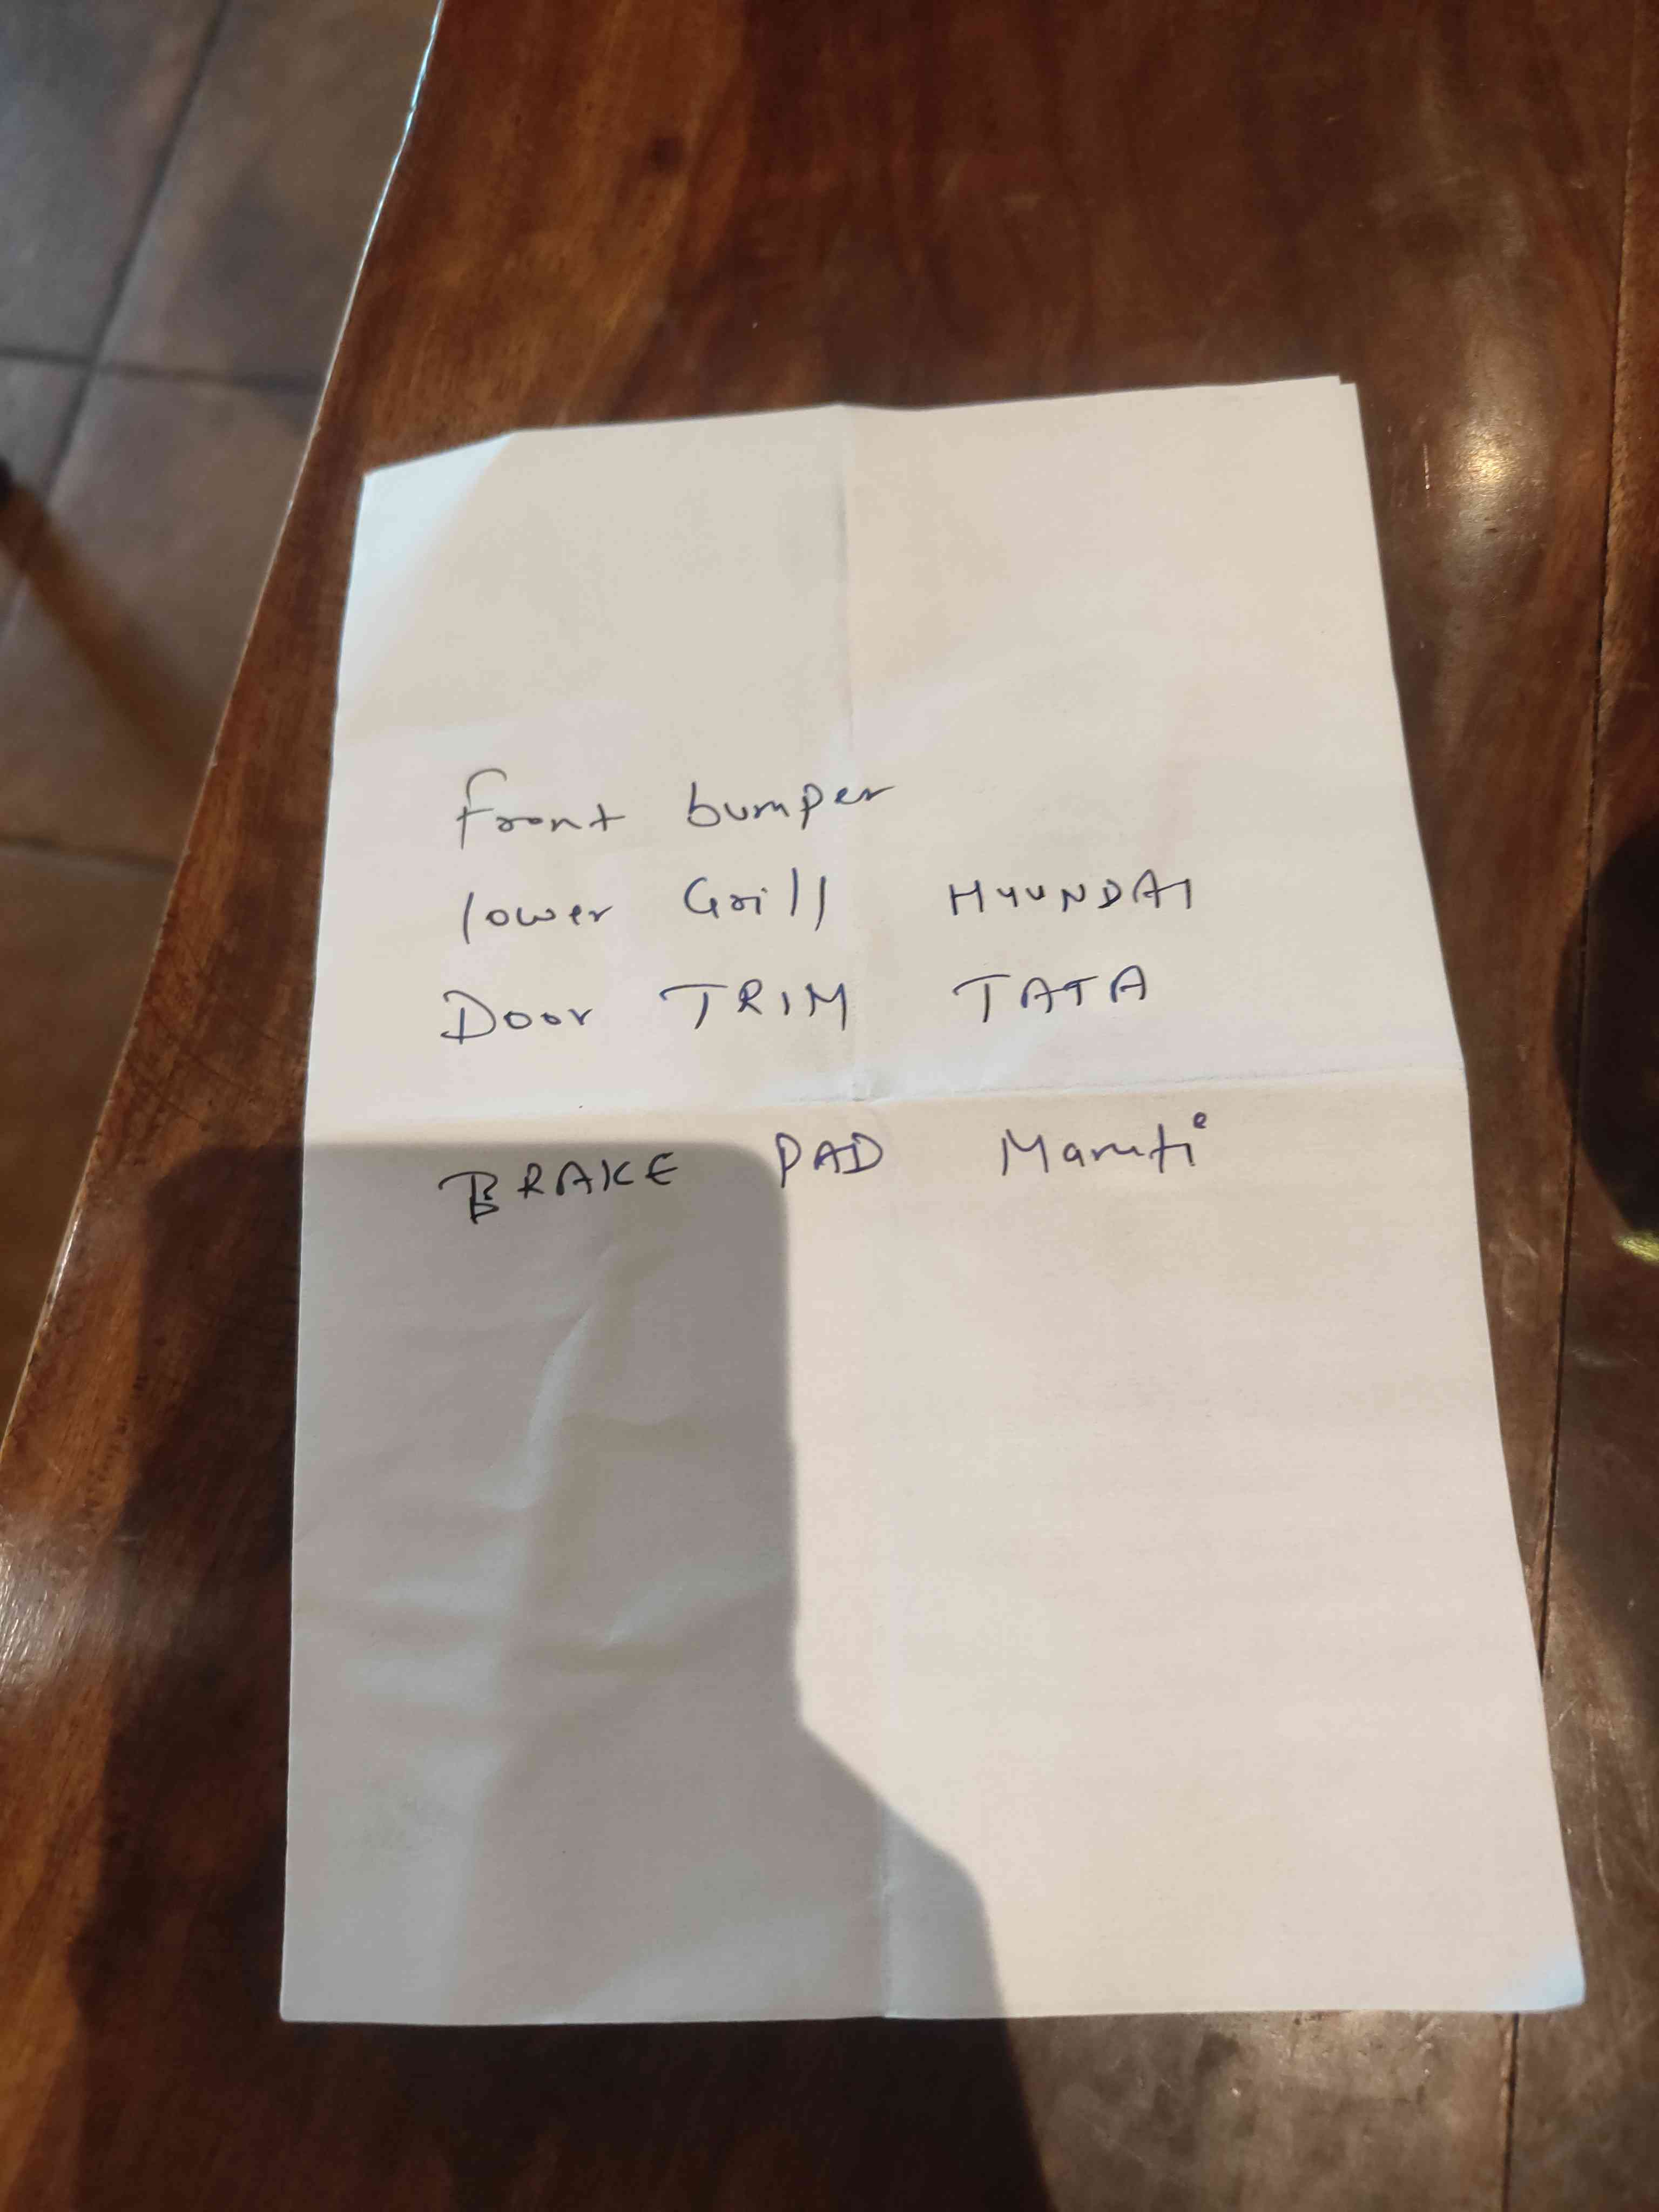 Front bumper
lower Grill HYUNDAI
Door TRIM TATA
BRAKE PAD Maruti